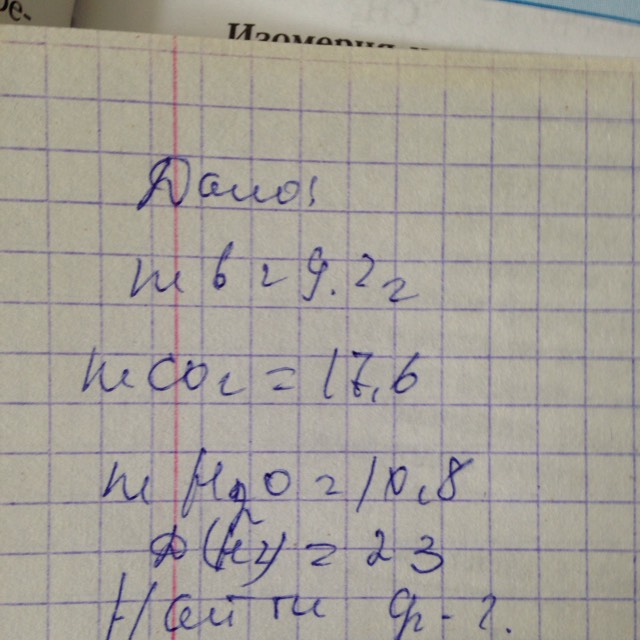 ое,
Изомерия
Дано:
m в = 9.2 г
m CO₂ = 17,6
m H₂O = 10,8
D(H₂) = 23
Найти ф-?.